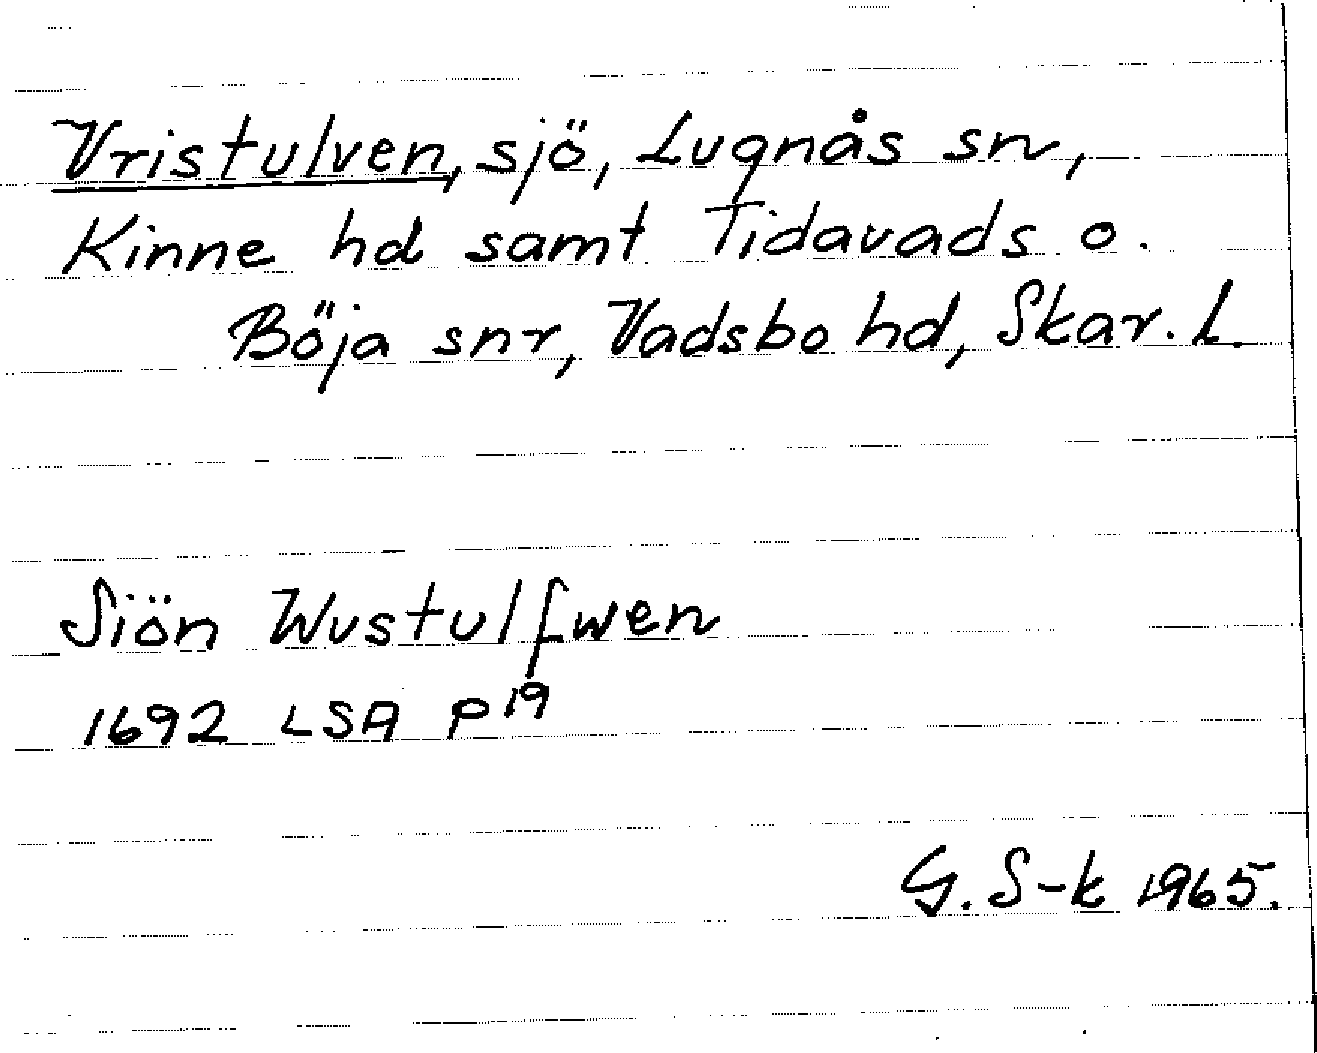 Vristulven, sjö, Lugnås sn,
Kinne hd samt Tidavads o.
Böja snr, Vadsbo hd, Skar. L.
Siön Wustulfwen
1692 LSA P19
G. S-k 1965.